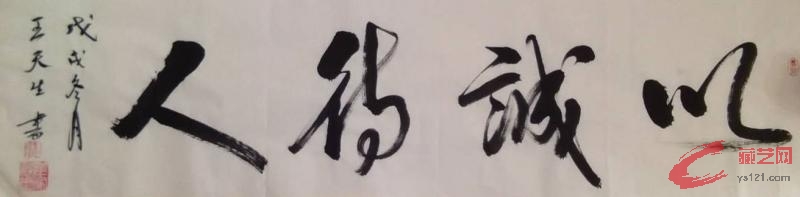 以誠待人
戊戌冬月
王天生書
藏艺网
ys121.com